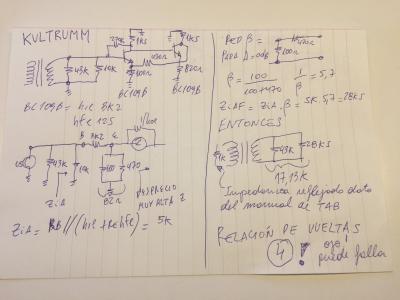 KULTRUMM
270K
1K5
1K5
43K
10K
470Ω
100Ω
820Ω
BC109B
BC109B
BC109B = hie 8K2
hfe 125
B
E
8K2
43K
10K
100
470
82Ω
DESPRECIO
MUY ALTA Z
ZiA
ZiA = RB//(hie+Re·hfe) = 5K
RED β =
470Ω
100Ω
PARA Δ=0dB
β = 100 / 100+470
1/β = 5,7
ZiAF = ZiA·β = 5K·5,7=28K5
ENTONCES
1K
43K
28K5
17,13K
Impedancia reflejada dato
del manual de TAB
RELACIÓN DE VUELTAS
4 ! ojo!
puede fallar